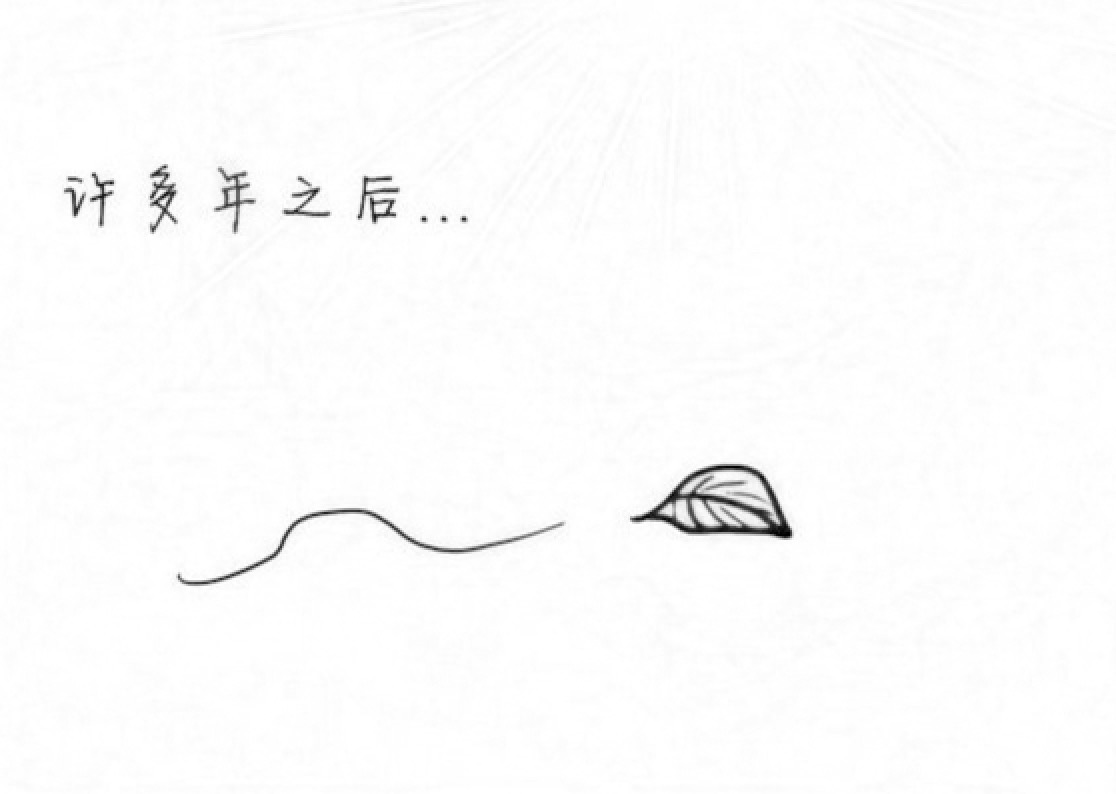 许多年之后...